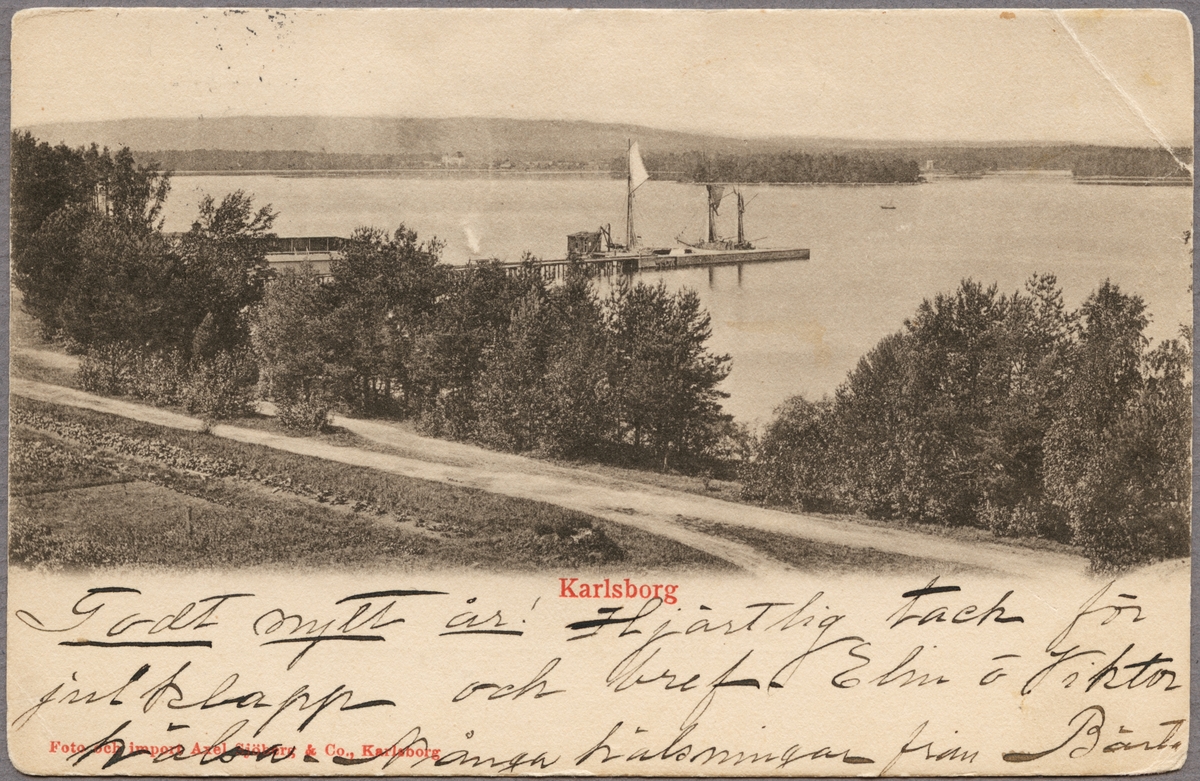 Karlsborg
Godt nytt år! Hjärtlig tack för
julklapp och bref. Elin o Viktor
hälsa. Många hälsningar från
Foto och import Axel Sjöberg & Co., Karlsborg